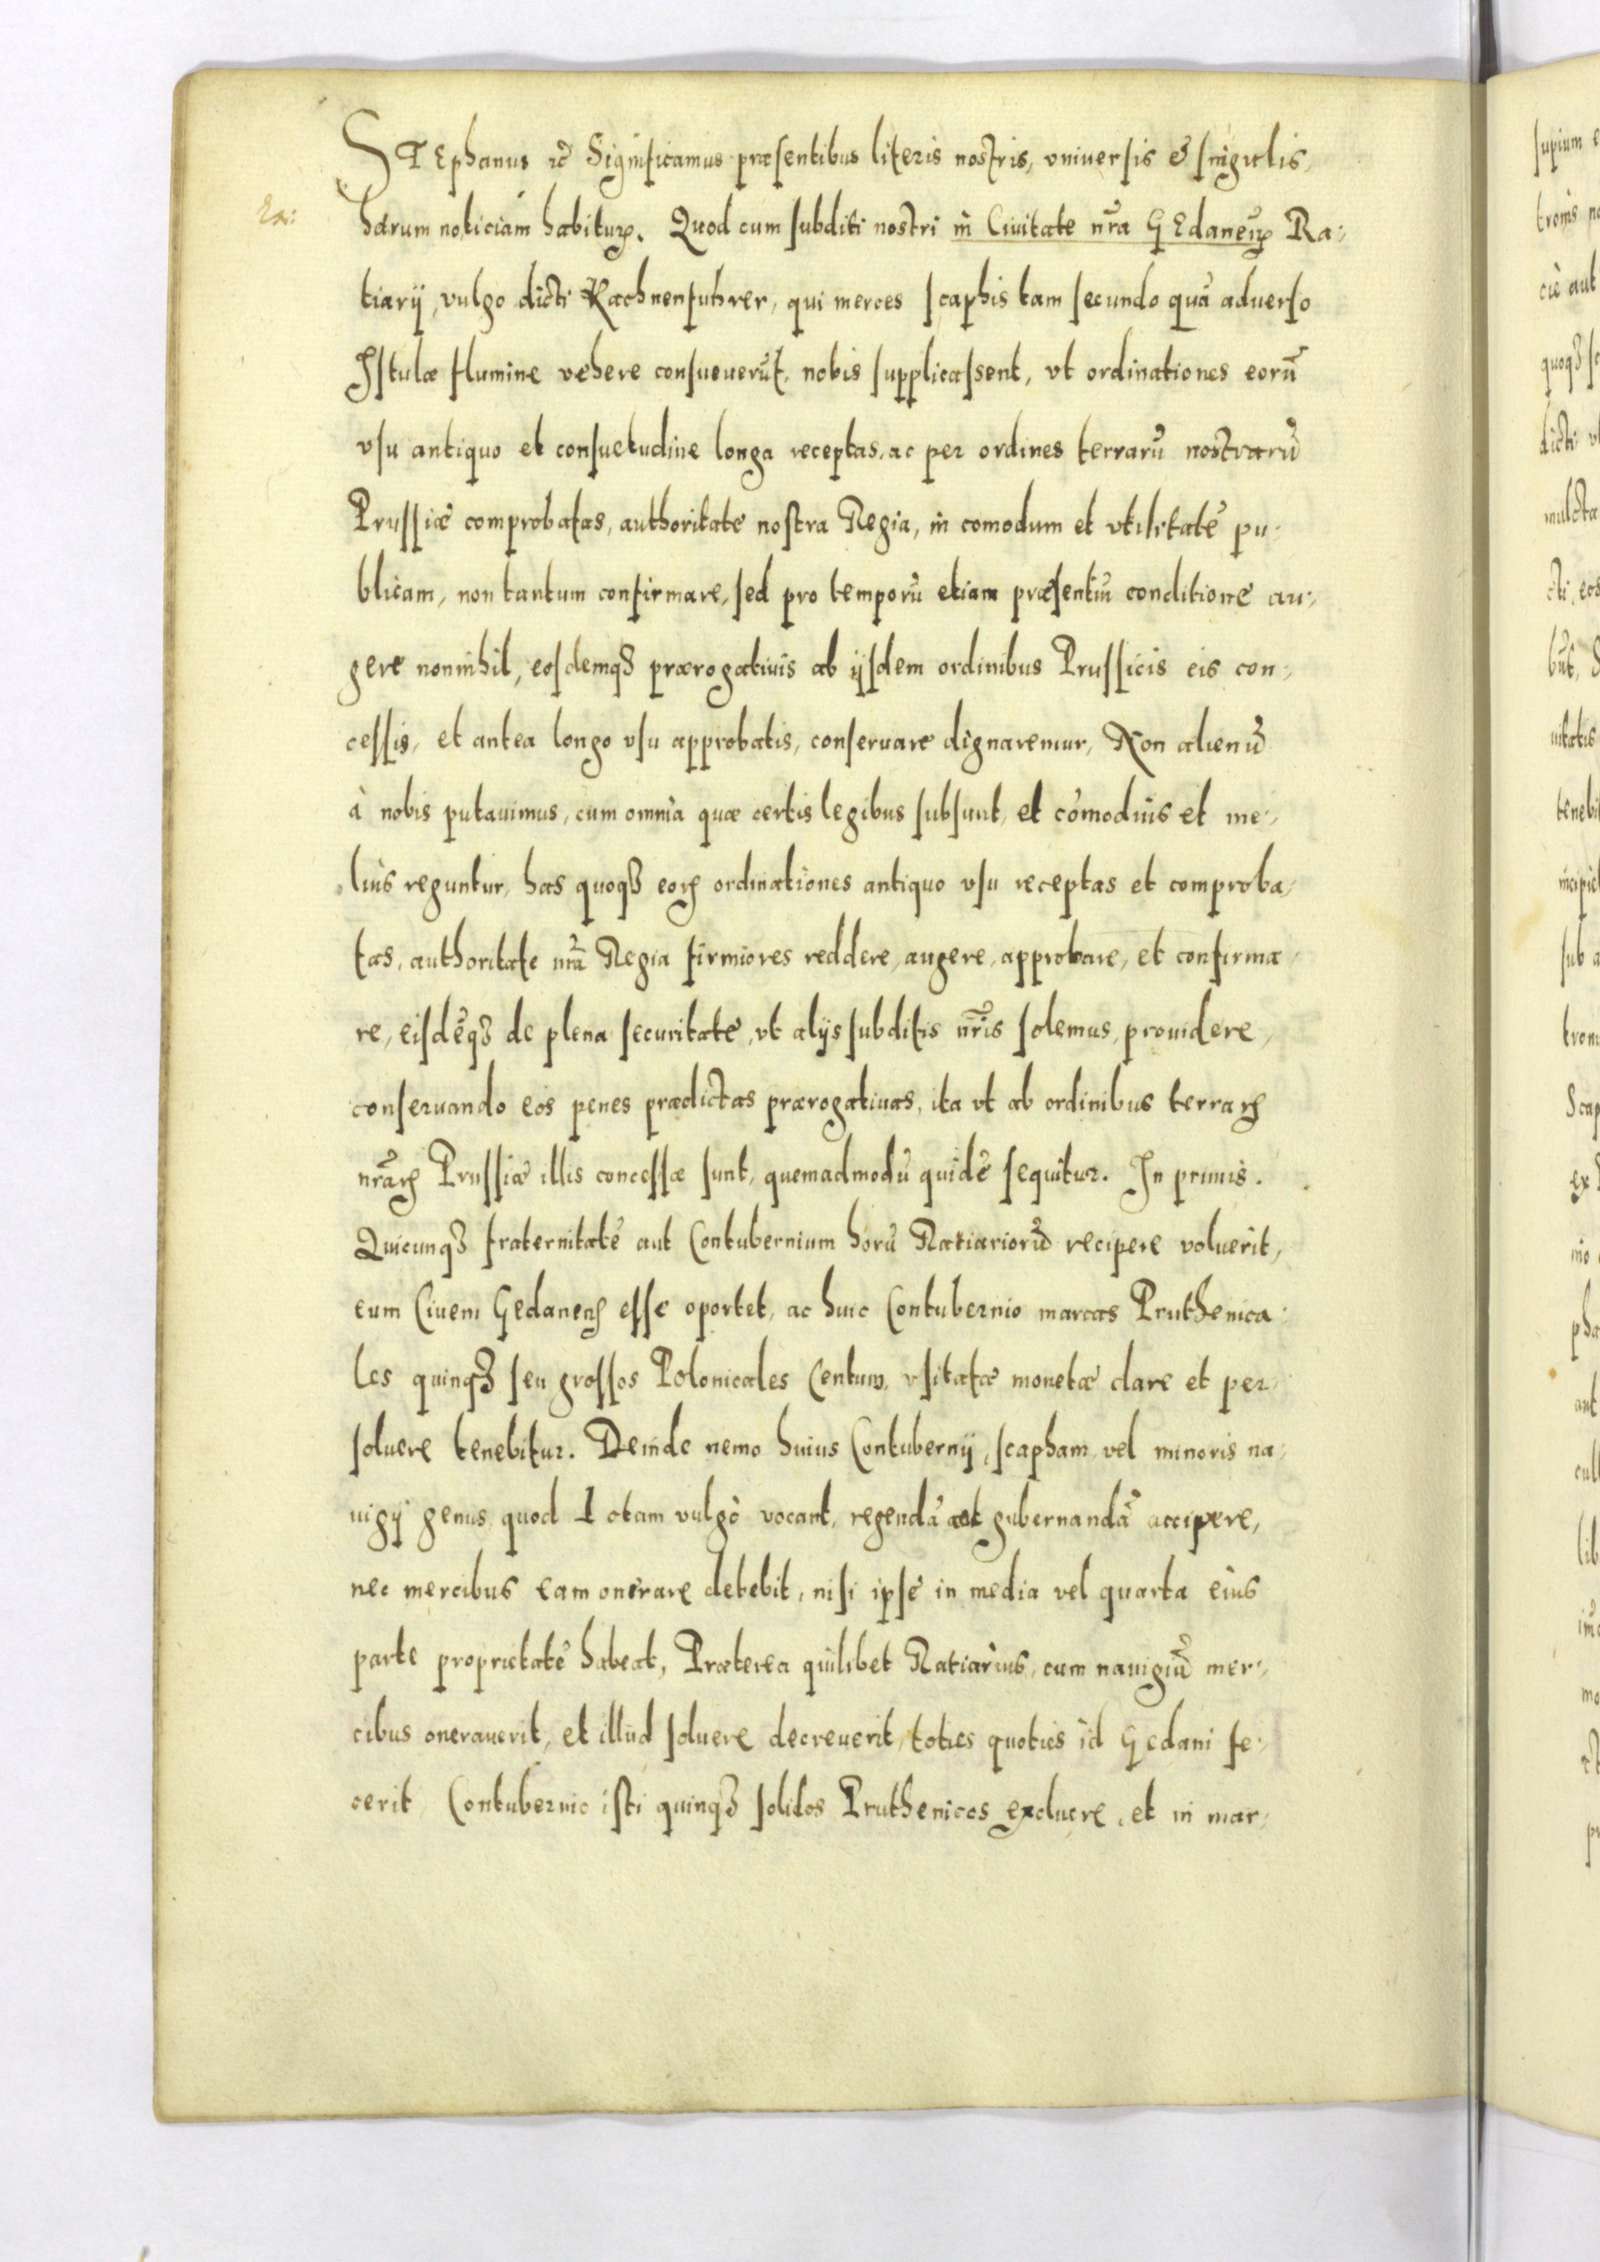 STEphanus ꝛc̃ Significamus præsentibus literis nostris, vniuersis & singulis,
harum noticiam habiturꝭ. Quod cum subditi nostri in Ciuitate nr̃a GEdaneñ Ra-
tiarij, vulgo dicti Kachnenfuhrer, qui merces scaphis tam secundo quā aduerso
Istulæ flumine vehere consueuerūt, nobis supplicassent, vt ordinationes eorū
vsu antiquo et consuetudine longa receptas, ac per ordines terrarū nostrarū
Prussiæ comprobatas, authoritate nostra Regia, in comodum et vtilitatē pu-
blicam, non tantum confirmare, sed pro temporū etiam præsentiū conditione au-
gere nonnihil, eosdemqꝫ prærogatiuis ab ijsdem ordinibus Prussicis eis con-
cessis, et antea longo vsu approbatis, conseruare dignaremur, Non alienū
à nobis putauimus, cum omnia quæ certis legibus subsunt, et cōmodius et me-
lius reguntur, has quoqꝫ eoꝝ ordinationes antiquo vsu receptas et comproba-
tas, authoritate nr̃a Regia firmiores reddere, augere, approbare, et confirma-
re, eisdēqꝫ de plena securitate, vt alijs subditis nr̃is solemus, prouidere,
conseruando eos penes prædictas prærogatiuas, ita vt ab ordinibus terraꝝ
nr̃aꝝ Prussiæ illis concessæ sunt, quemadmodū quidē sequitur. In primis.
Quicunqꝫ fraternitatē aut Contubernium horū Ratiariorū recipere voluerit,
eum Ciuem Gedaneñ esse oportet, ac huic Contubernio marcas Pruthenica-
les quinqꝫ seu grossos Polonicales Centum, vsitatæ monetæ dare et per-
soluere tenebitur. Deinde nemo huius Contubernij, scapham, vel minoris na-
uigij genus quod Lotam vulgò vocant, regendā aut gubernandā accipere,
nec mercibus eam onerare debebit, nisi ipse in media vel quarta eius
parte proprietatē habeat, Præterea quilibet Ratiarius, cum nauigiū mer-
cibus onerauerit, et illud soluere decreuerit, toties quoties id Gedani fe-
cerit, Contubernio isti quinqꝫ solidos Pruthenicos exoluere, et in mar-